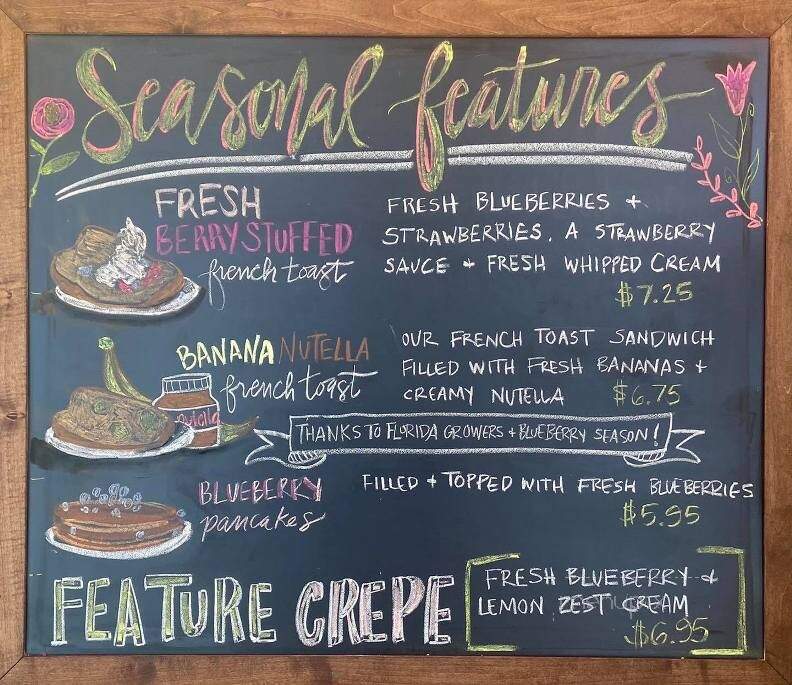 Seasonal features
FRESH
BERRY STUFFED
french toast
FRESH BLUEBERRIES +
STRAWBERRIES. A STRAWBERRY
SAUCE + FRESH WHIPPED CREAM
$7.25
BANANA NUTELLA
french toast
OUR FRENCH TOAST SANDWICH
FILLED WITH FRESH BANANAS +
CREAMY NUTELLA $6.75
nutella
THANKS TO FLORIDA GROWERS + BLUEBERRY SEASON!
BLUEBERRY
pancakes
FILLED + TOPPED WITH FRESH BLUEBERRIES
$5.95
FEATURE CREPE
FRESH BLUEBERRY +
LEMON ZEST CREAM
$6.95